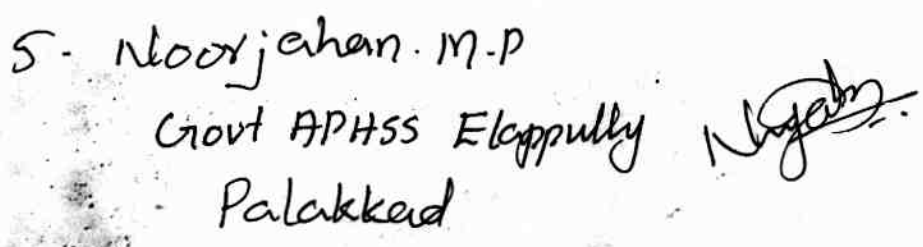 5- Noorjahan. M.P
Govt APHSS Elappully
Palakkad